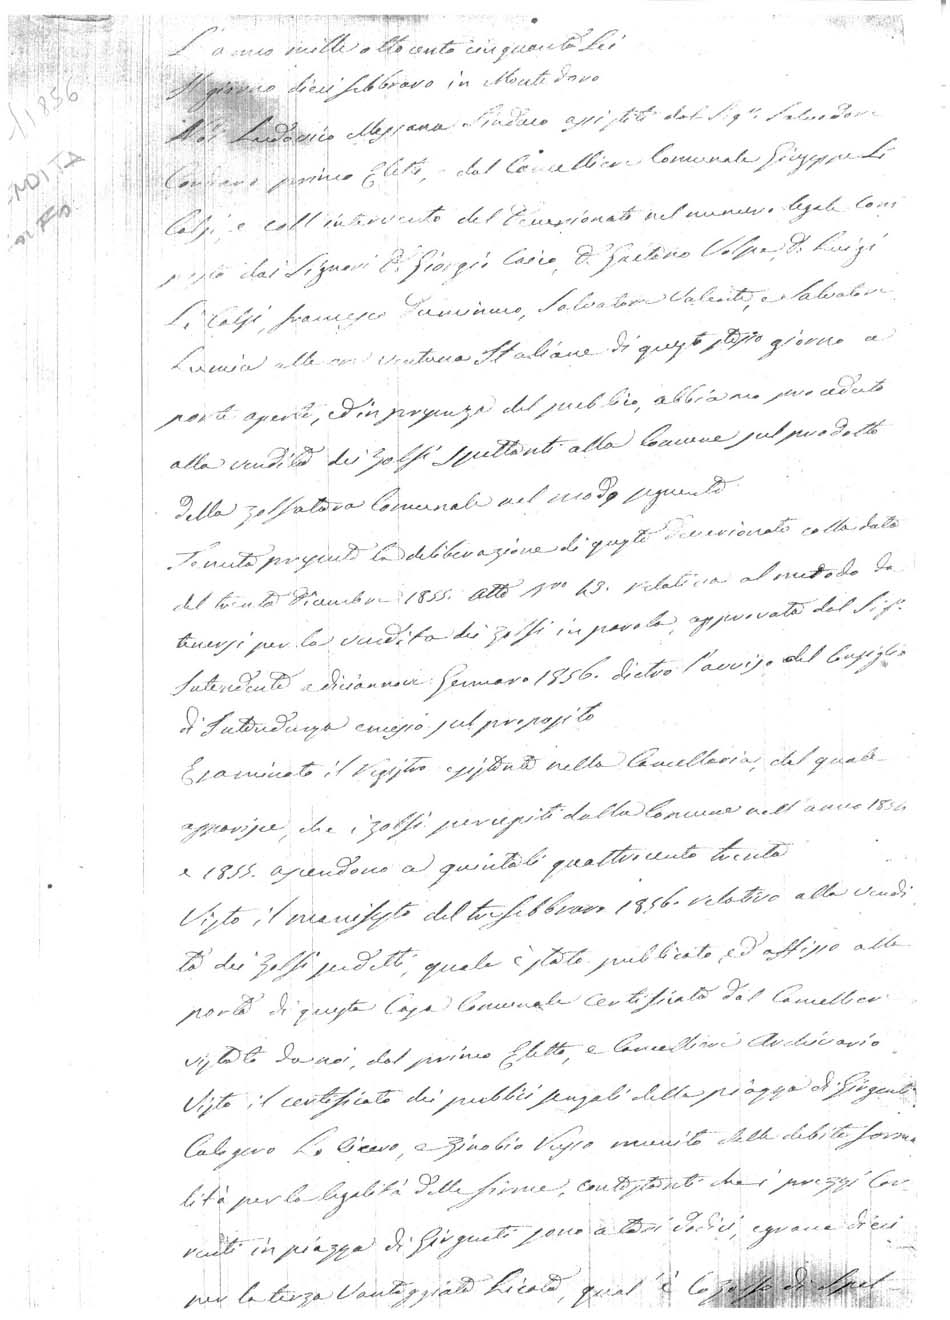 1/1856
L'anno mille ottocento cinquanta Sei
Il giorno dieci febbraro in Montedoro
Noi Ludovico Messana Sindaco assistiti dal Sig.r Salvadore
primo Eletto, e dal Cancelliere Comunale Giuseppe Li
Calzi, e coll'intervento del Decurionato nel numero legale com
posto dai Signori D. Giorgio Caico, D. Gaetano Volpe, D. Luigi
Li Calzi, Francesco Salvatore Valenti, e Salvatore
Lumia alle ore ventuna Italiane di questo stesso giorno a
porte aperte, ed in presenza del pubblico, abbiamo proceduto
alla vendita dei zolfi spettanti alla Comune sul prodotto
della zolfatara Comunale nel modo seguente
Tenuta presente la deliberazione di questo Decurionato colla data
del trenta Dicembre 1855. atto N.ro 43. relativa al metodo da
tenersi per la vendita dei zolfi in parola, approvata dal Sig.r
Intendente a diciannove Gennaro 1856. dietro l'avviso del Consiglio
di Intendenza emesso sul proposito
Esaminato il registro esistente nella Cancelleria, dal quale
apparisce, che i zolfi percepiti dalla Comune nell'anno 1854
e 1855. ascendono a quintali quattrocento trenta
Visto il manifesto del tre febbraro 1856. relativo alla vendi
ta dei zolfi sudetti, quale è stato pubblicato, ed affisso alla
porta di questa Casa Comunale certificato dal Cancellier
vistato da noi, dal primo Eletto, e Cancelliere Archivario
Visto il certificato dei pubblici sensali della piazza di Girgenti
Calogero Lo Cicero, e Zinobio munito delle debite forma
lità per la legalità delle firme, contestanti che i prezzi Cor
renti in piazza di Girgenti sono a tarì dodici, e grana dieci
per la terza Vantaggiata Licata, qual'è lo zolfo di